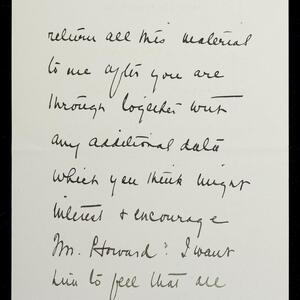 return all this material
to me after you are
through together with
any additional data
which you think might
interest & encourage
Mr. Howard? I want
him to feel that all